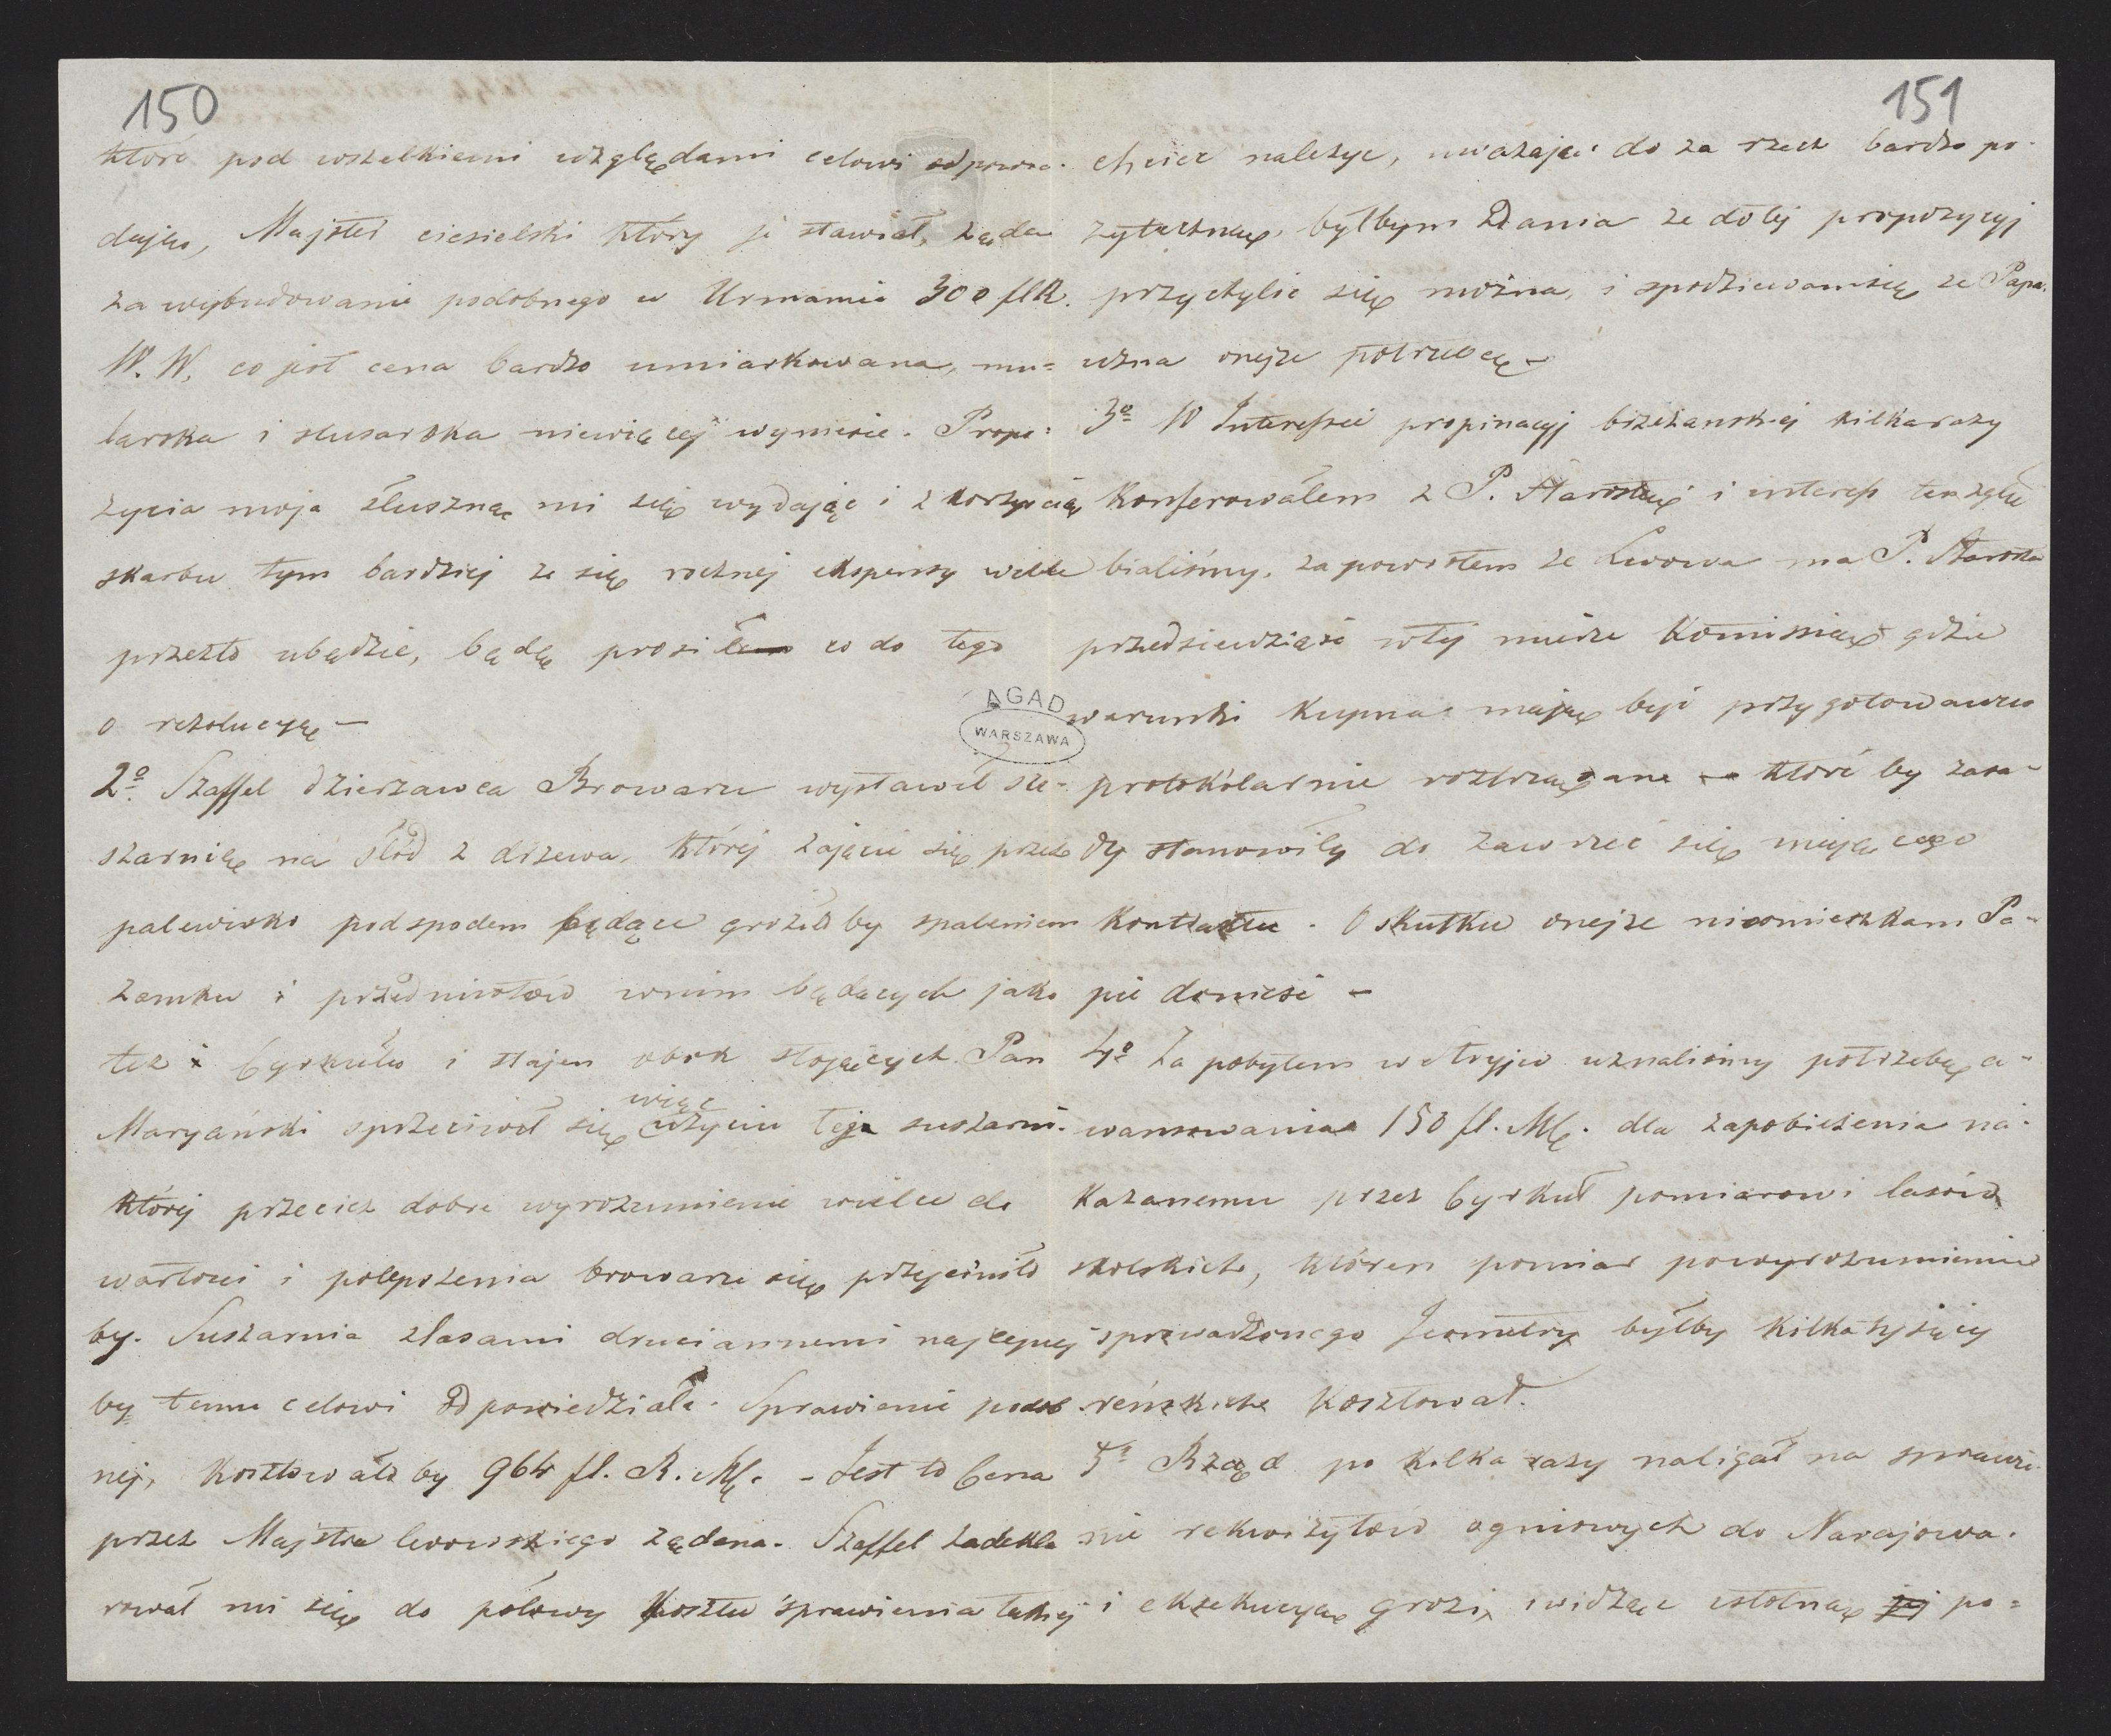 150
które pod wszelkiemi względami celowi odpowia-
dają, Majster ciesielski który je stawiał, żąda
za wybudowanie podobnego w Urmanie 300 flR.
W. W. co jest cena bardzo umiarkowana, mu=
larska i slusarska niewięcej wyniesie. Propo=
zycia moja słuszną mi się wydając i z korzyścią
skarbu tym bardziej ze się rocznej expensy wiele
przezto ubędzie, będę prosił co do tego
o rezolucyę –
2º. Szaffel dzierzawca Browaru wystawił su-
szarnię na słód z drzewa, której zajęcie się przez
palewisko podspodem będące groziło by spaleniem
zamku i przedmiotów wnim będących jako
tez i Cyrkułu i stajen obok stojących. Pan
Maryański sprzeciwił się więc użyciu tej suszarni.
której przeciez dobre wyrozumienie wielce do
wartosci i polepszenia browaru się przyczyniło
by. Suszarnia zlasami druciannemi najlepiej
by temu celowi odpowiedziała. Sprawienie podob
nej, kosztowało by 964 fl. R. Mk. – Jest to Cena
przez Majstra lwowskiego ządana. Szaffel zadekla
rował mi się do połowy kosztu sprawienia takiej
AGAD
WARSZAWA
151
chcieć należyć, uważając to za rzecz bardzo po-
zyteczną, byłbym zdania ze dotej propozycyj
przychylić się można, i spodziewamsię ze Papa
uzna onejze potrzebę –
3º W Interessie propinacyj brzeżanskiej kilkarazy
Konferowałem z P. Starostą i interess tenzgłę
bialiśmy, za powrotem ze Lwowa ma P. Starosta
przedsiewziąść wtej mierze Komissią gdzie
warunki Kupna mają być przygotowawczo
protokólarnie roztrząsane – które by zasa-
dy stanowiły do zawrzeć się mającego
Kontraktu. O skutku onejze nieomieszkam Pa-
pie donieść –
4º Za pobytem w Stryju uznaliśmy potrzebę a-
wansowania 150 fl. Mk. dla zapobiezenia na-
kazanemu przez Cyrkuł pomiarowi lasów
skolskich, któren pomiar powyrozumieniu
sprowadzonego Jeometry byłby kilkatysięcy
reńskich kosztował.
5º Rząd po kilka razy nalegał na sprawie-
nie rekwizytów ogniowych do Narajowa.
i eksekucyą grozi, widząc istotną po=